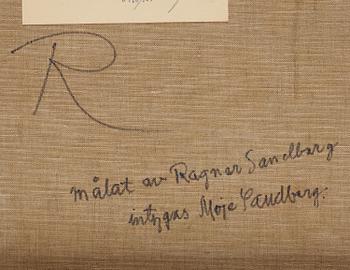 R
målat av Ragnar Sandberg
intygas Moje Sandberg.